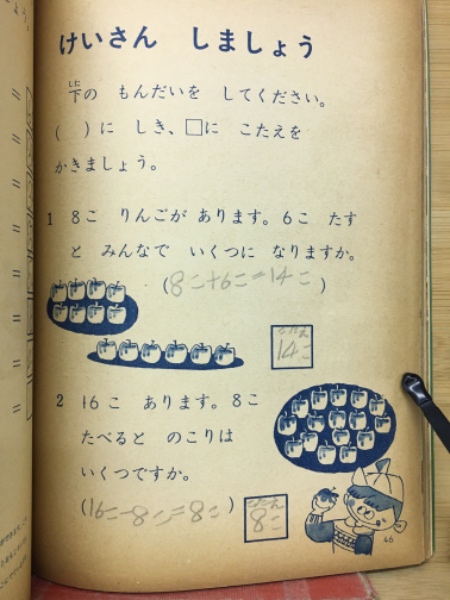 けいさん しましょう
下の もんだいを してください。
した
( )に しき、□に こたえを
かきましょう。
1 8こ りんごが あります。6こ たす
と みんなで いくつに なりますか。
(8こ+6こ=14こ)
こたえ
14こ
2 16こ あります。8こ
たべると のこりは
いくつですか。
(16こ-8こ=8こ)
こたえ
8こ
46